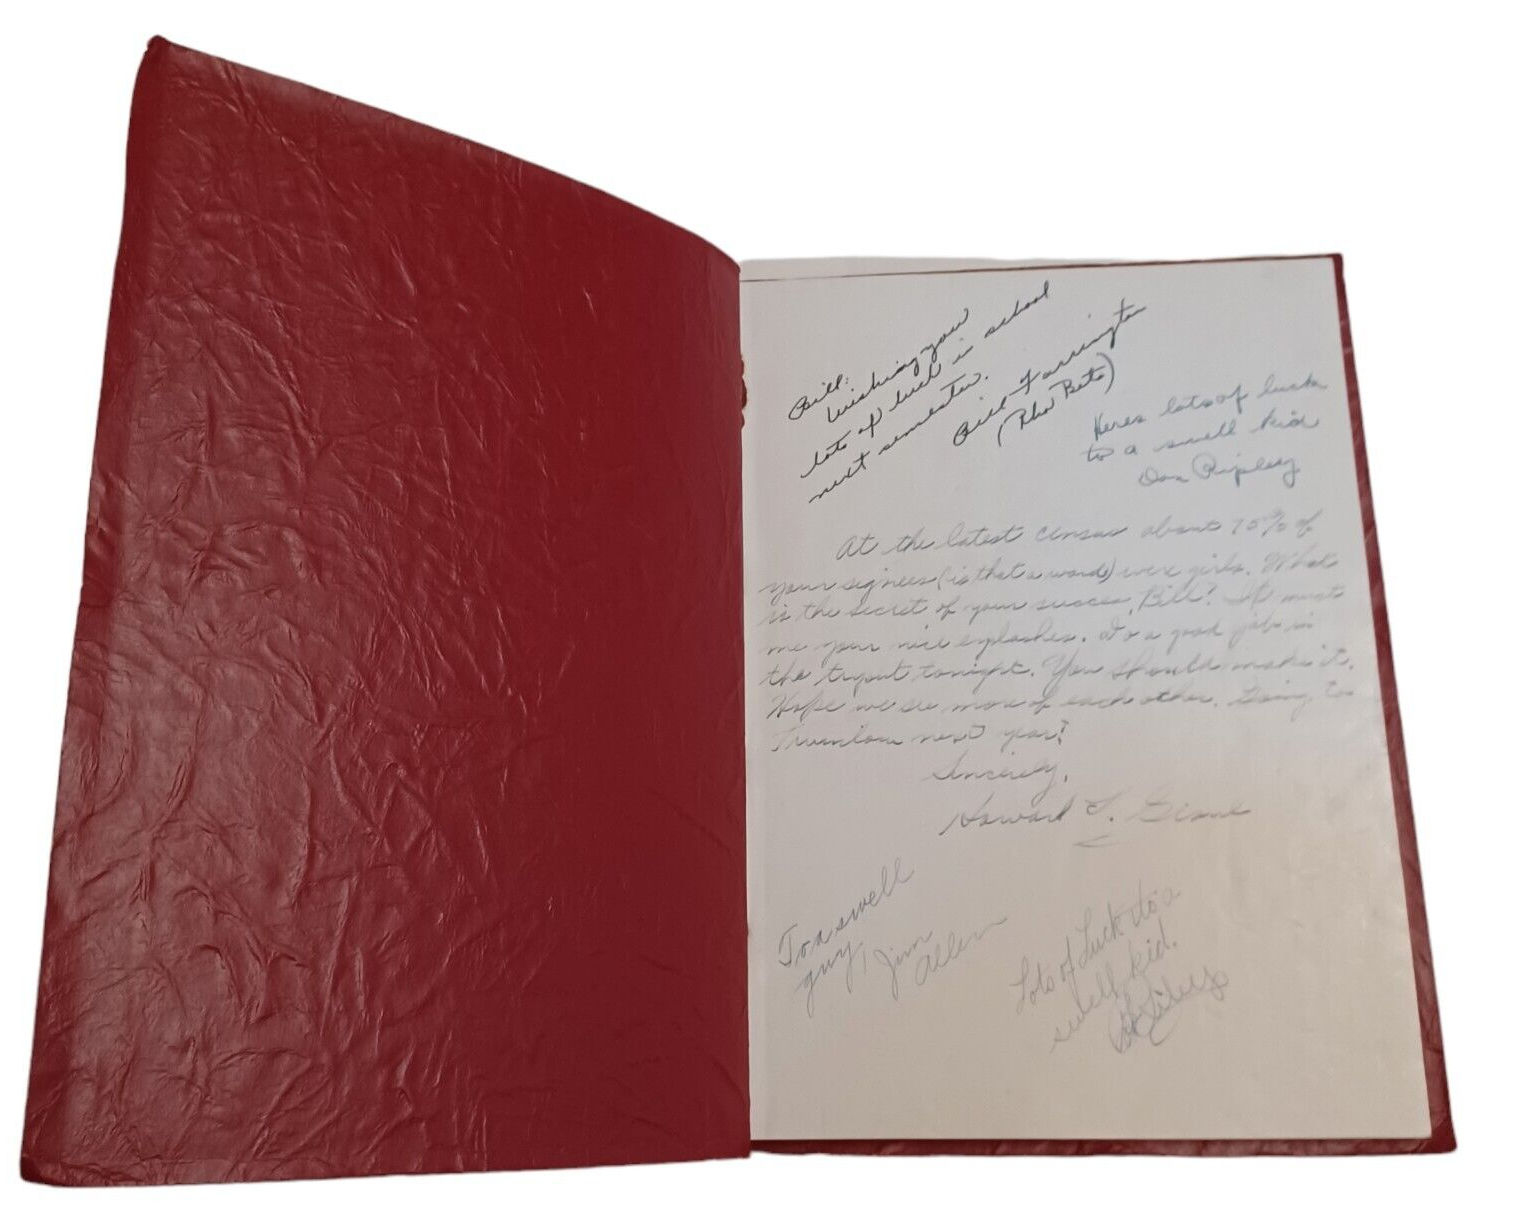 Bill:
Wishing you
lots of luck is school
next semester.
Bill Farrington
(Rho Beta)
Heres lots of luck
to a swell kid
Don Ripley
At the latest census about 75% of
your signees (is that a word) were girls. What
is the secret of your succes, Bill? It must
me your nice eylashes. Do a good job in
the tryout tonight. You should make it.
Hope we see more of each other. Going to
next year?
Sincerely,
Howard
To a swell
guy,
Jim
Allen
Lots of Luck to a
swell kid.